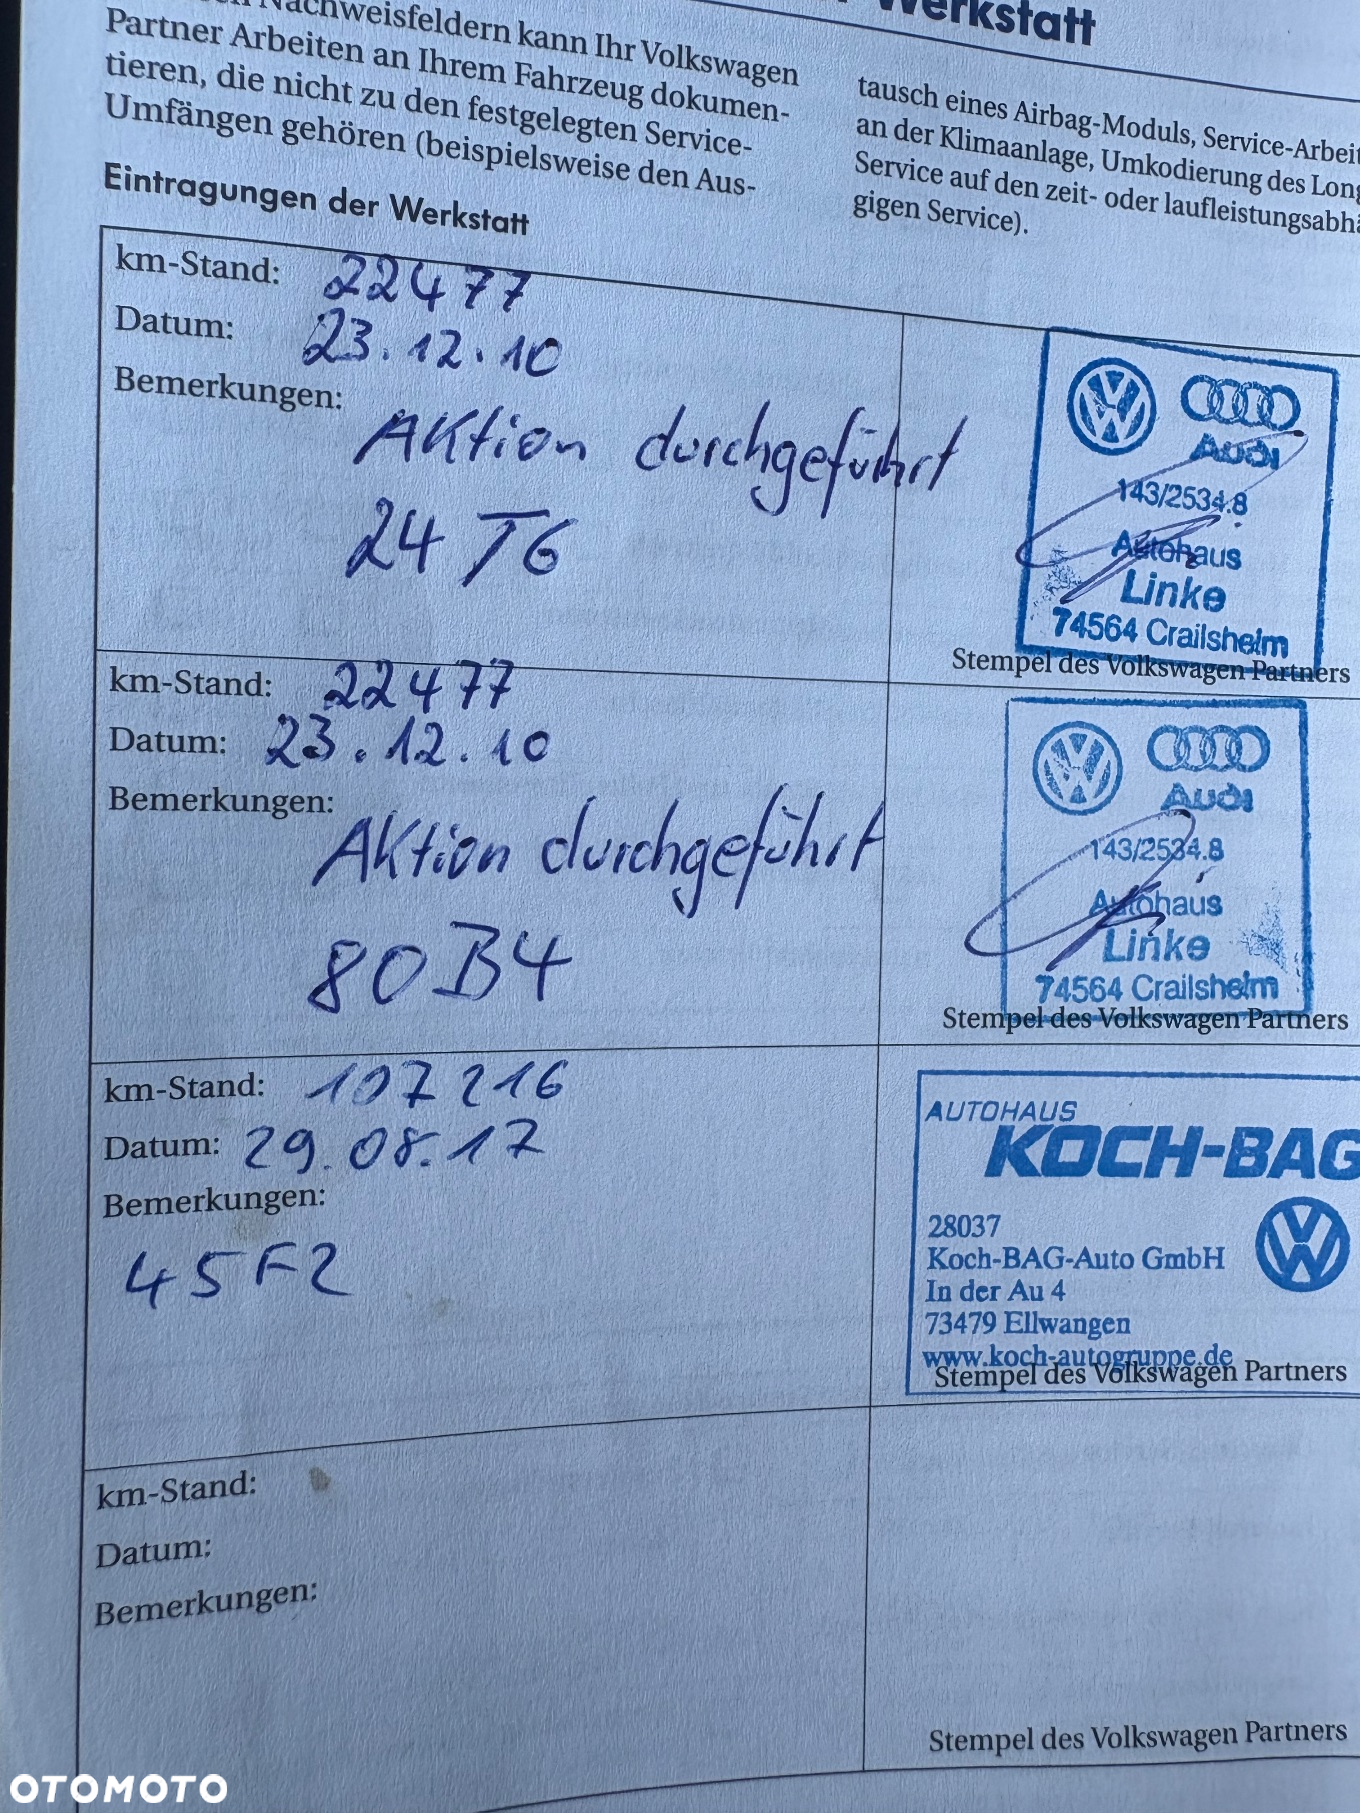 Werkstatt
Nachweisfeldern kann Ihr Volkswagen
Partner Arbeiten an Ihrem Fahrzeug dokumen-
tieren, die nicht zu den festgelegten Service-
Umfängen gehören (beispielsweise den Aus-
tausch eines Airbag-Moduls, Service-Arbeit
an der Klimaanlage, Umkodierung des Long
Service auf den zeit- oder laufleistungsabhä
gigen Service).
Eintragungen der Werkstatt
km-Stand: 22477
Datum: 23.12.10
Bemerkungen:
Aktion durchgeführt
24 T6
Audi
143/2534.8
Autohaus
Linke
74564 Crailsheim
Stempel des Volkswagen Partners
km-Stand: 22477
Datum: 23.12.10
Bemerkungen:
Aktion durchgeführt
80B4
Audi
143/2534.8
Autohaus
Linke
74564 Crailsheim
Stempel des Volkswagen Partners
km-Stand: 107216
Datum: 29.08.17
Bemerkungen:
45F2
AUTOHAUS
KOCH-BAG
28037
Koch-BAG-Auto GmbH
In der Au 4
73479 Ellwangen
www.koch-autogruppe.de
Stempel des Volkswagen Partners
km-Stand:
Datum:
Bemerkungen:
Stempel des Volkswagen Partners
OTOMOTO